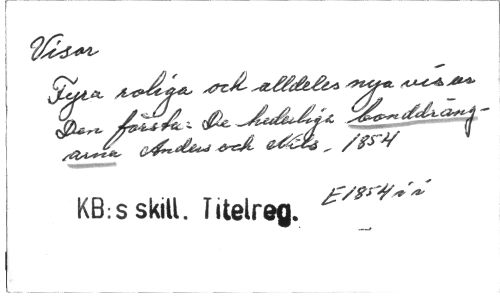 Visor
Fyra roliga och alldeles nya visor
Den första: De hederliga bonddräng-
arna Anders och Nils, 1854
E1854 i i
KB:s skill. Titelreg.